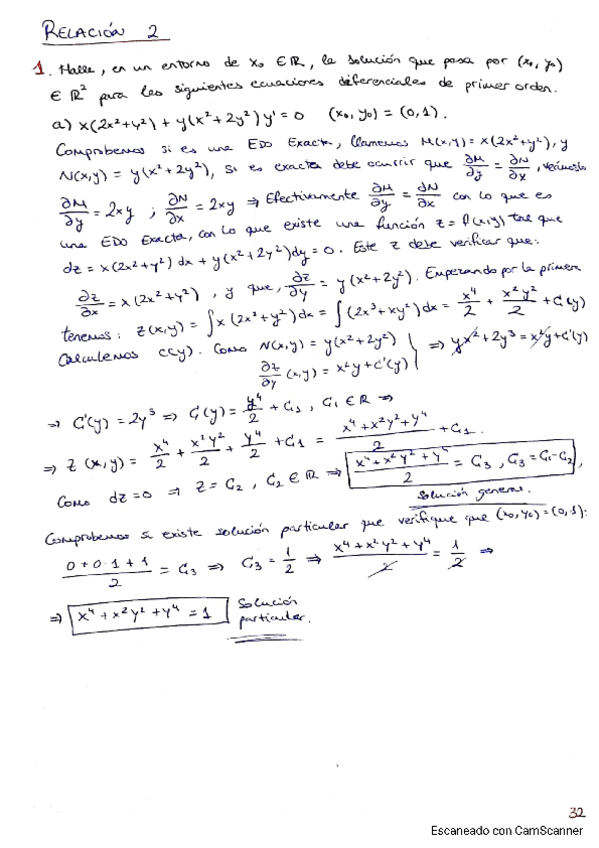 RELACIÓN 2
1. Halle, en un entorno de x₀ ∈ ℝ, la solución que pasa por (x₀, y₀)
∈ ℝ² para las siguientes ecuaciones diferenciales de primer orden.
a) x(2x²+y²) + y(x²+2y²)y' = 0 (x₀, y₀) = (0,1).
Comprobemos si es una EDO Exacta, llamemos M(x,y) = x(2x²+y²), y
N(x,y) = y(x²+2y²), si es exacta debe ocurrir que ∂M/∂y = ∂N/∂x, veámoslo
∂M/∂y = 2xy ; ∂N/∂x = 2xy ⇒ Efectivamente ∂M/∂y = ∂N/∂x con lo que es
una EDO Exacta, con lo que existe una función z = f(x,y) tal que
dz = x(2x²+y²) dx + y(x²+2y²)dy = 0. Este z debe verificar que:
∂z/∂x = x(2x²+y²), y que, ∂z/∂y = y(x²+2y²). Empezando por la primera
tenemos: z(x,y) = ∫x(2x²+y²)dx = ∫(2x³+xy²)dx = x⁴/2 + x²y²/2 + C(y)
Calculemos C(y). Como N(x,y) = y(x²+2y²)
∂z/∂y (x,y) = x²y + C'(y) ⇒ yx²+2y³ = x²y+C'(y)
⇒ C'(y) = 2y³ ⇒ C(y) = y⁴/2 + C₁, C₁ ∈ ℝ ⇒
⇒ z(x,y) = x⁴/2 + x²y²/2 + y⁴/2 + C₁ = (x⁴+x²y²+y⁴)/2 + C₁.
Como dz=0 ⇒ z = C₂, C₂ ∈ ℝ ⇒ (x⁴+x²y²+y⁴)/2 = C₃, C₃ = C₁-C₂,
solución general.
Comprobemos si existe solución particular que verifique que (x₀,y₀) = (0,1):
(0+0·1+1)/2 = C₃ ⇒ C₃ = 1/2 ⇒ (x⁴+x²y²+y⁴)/2 = 1/2 ⇒
⇒ x⁴+x²y²+y⁴ = 1 Solución
particular.
32
Escaneado con CamScanner